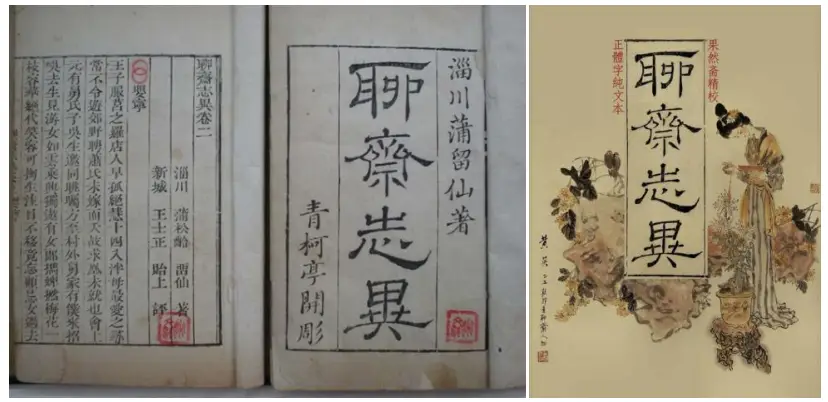 聊齋志異卷二
淄川 蒲松齡 畱仙 著
新城 王士正 貽上 評
嬰寧
王子服莒之羅店人早孤絕慧十四入泮母最愛之尋
常不令遊郊野聘蕭氏未嫁而夭故求凰未就也會上
元有舅氏子吳生邀同眺矚方至村外舅家有僕來招
吳去生見游女如雲乘興獨遨有女郎攜婢撚梅花一
枝容華絕代笑容可掬生注目不移竟忘顧忌女過去
淄川蒲留仙著
聊齋志異
青柯亭開彫
果然斋精校
聊齋志異
正體字純文本
黄英